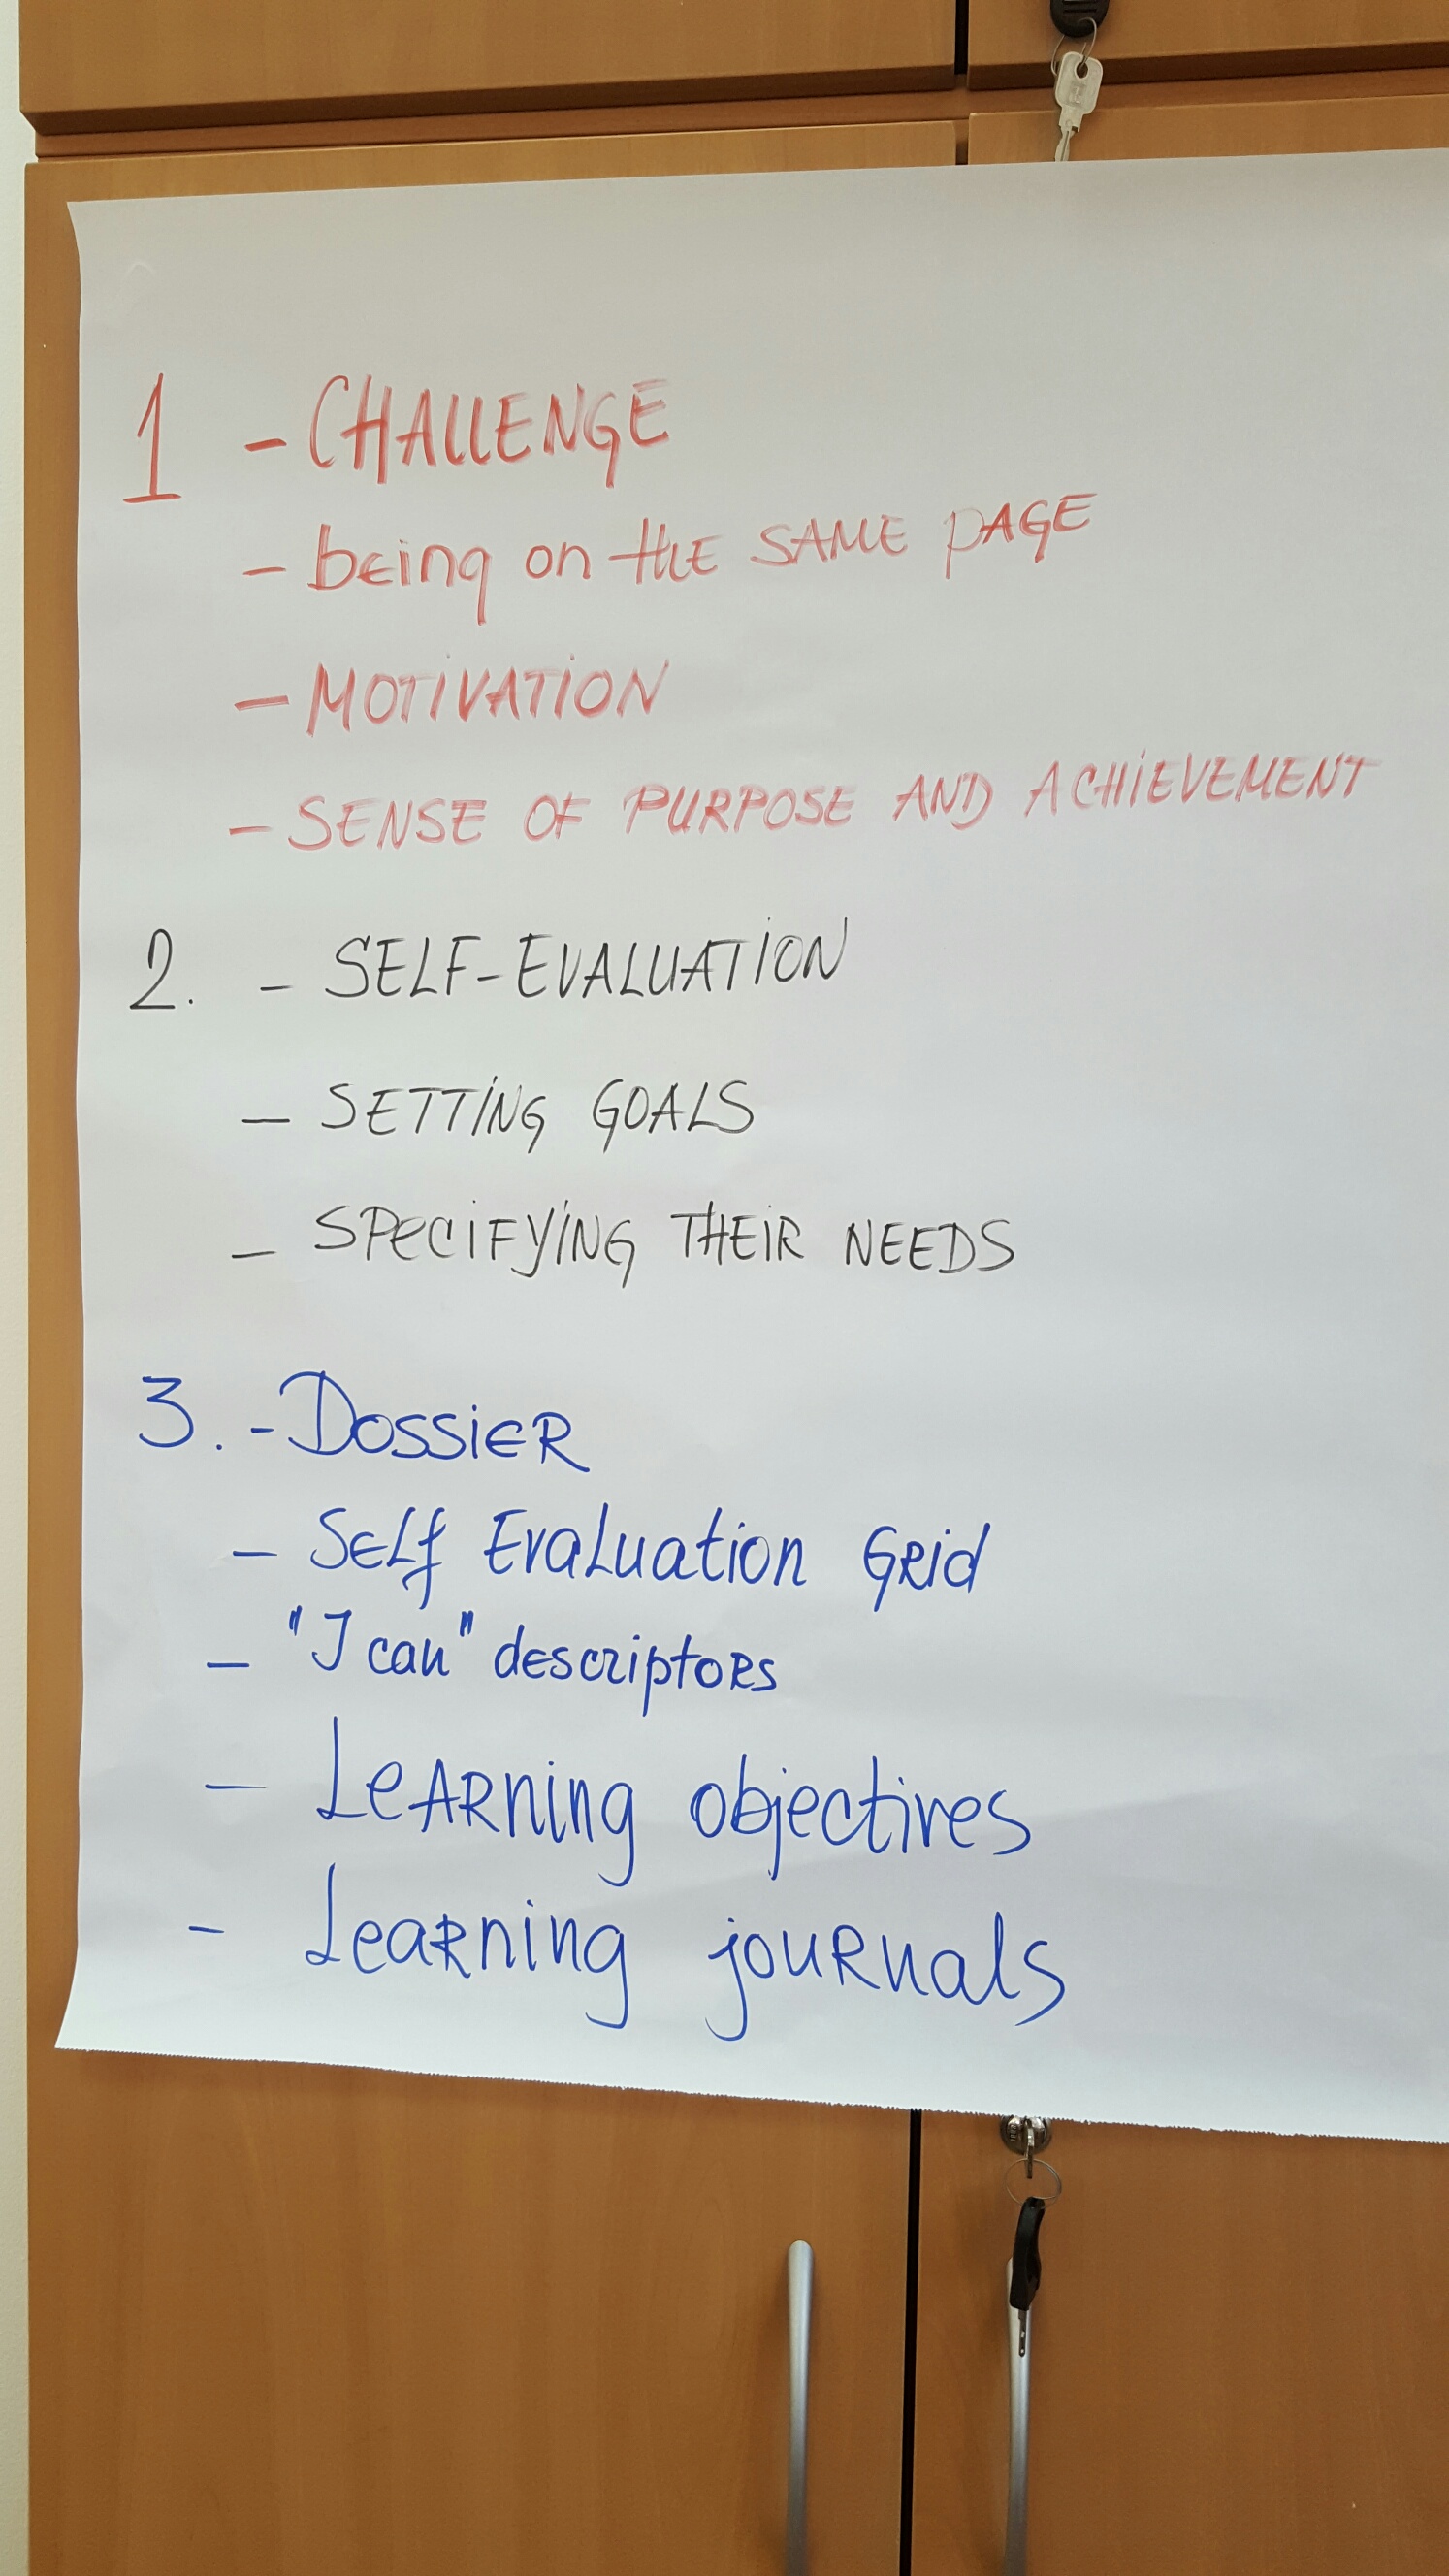 1 - CHALLENGE
- being on the SAME PAGE
- MOTIVATION
- SENSE OF PURPOSE AND ACHIEVEMENT
2. - SELF-EVALUATION
- SETTING GOALS
- SPECIFYING THEIR NEEDS
3. - DOSSIER
- Self Evaluation Grid
- "I can" descriptors
- Learning objectives
- Learning journals